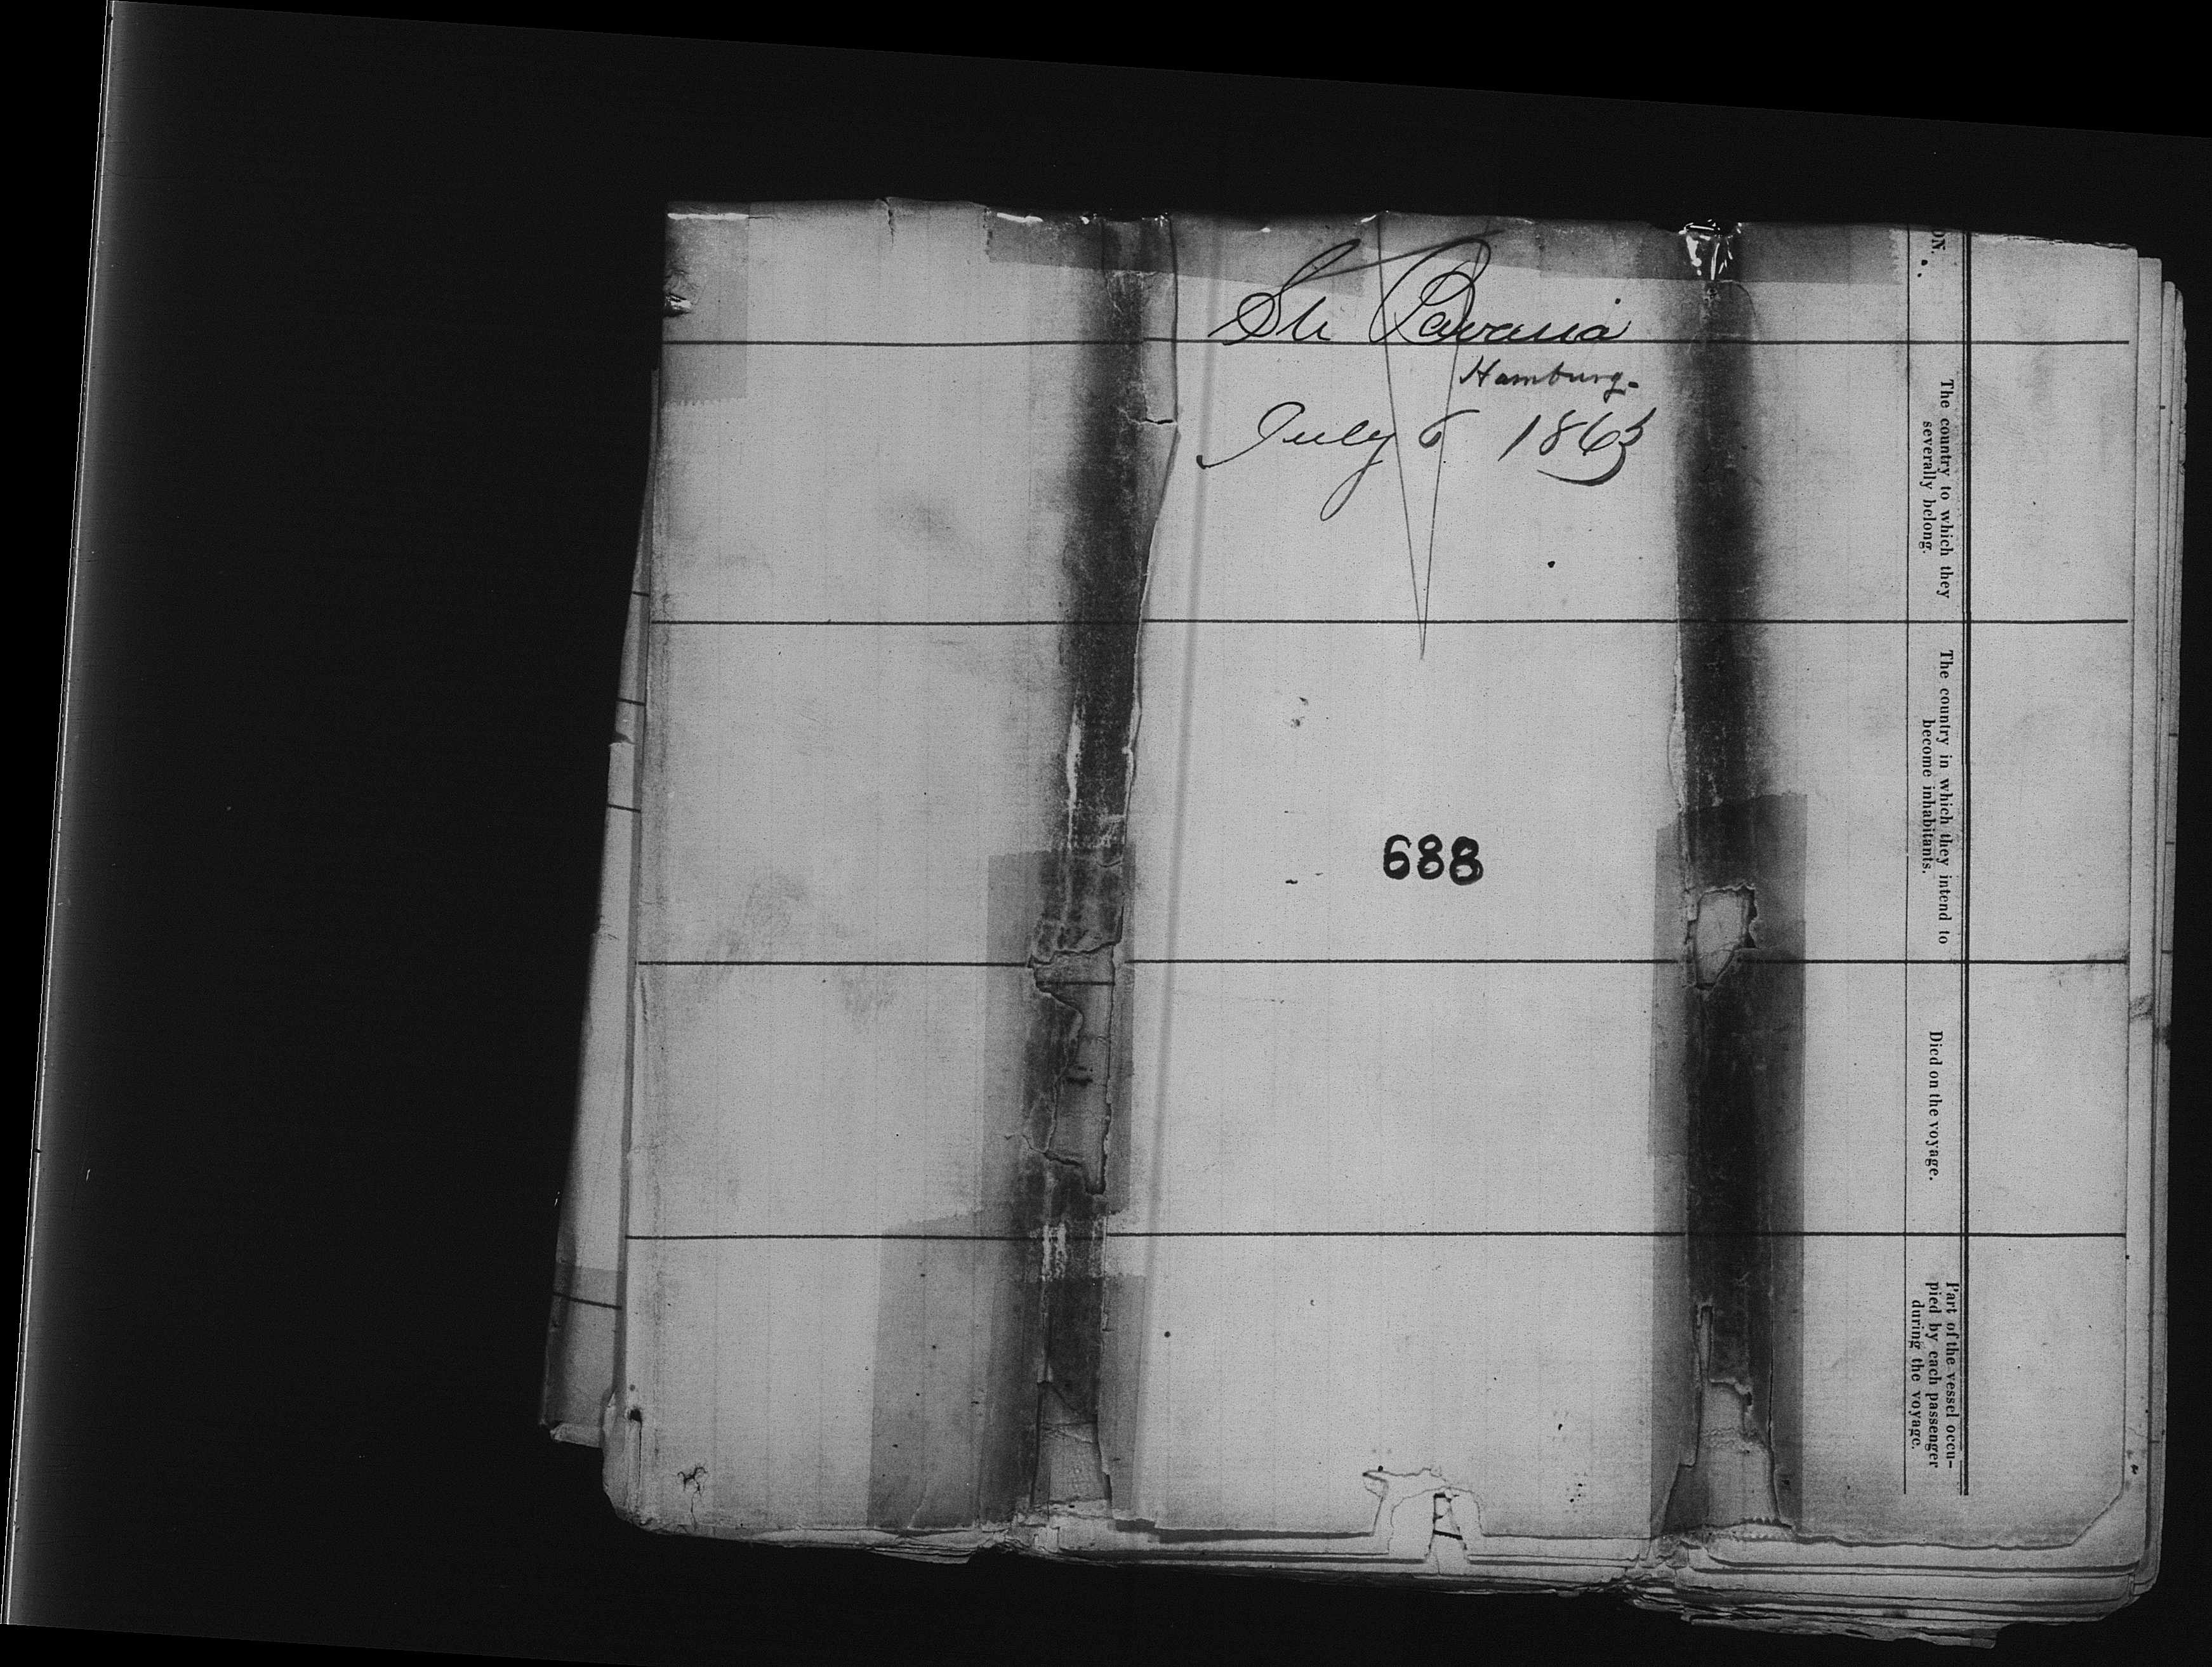 Str Bavaria
Hamburg-
July 6 1863
688
ON.
The country to which they
severally belong.
The country in which they intend to
become inhabitants.
Died on the voyage.
Part of the vessel occu-
pied by each passenger
during the voyage.